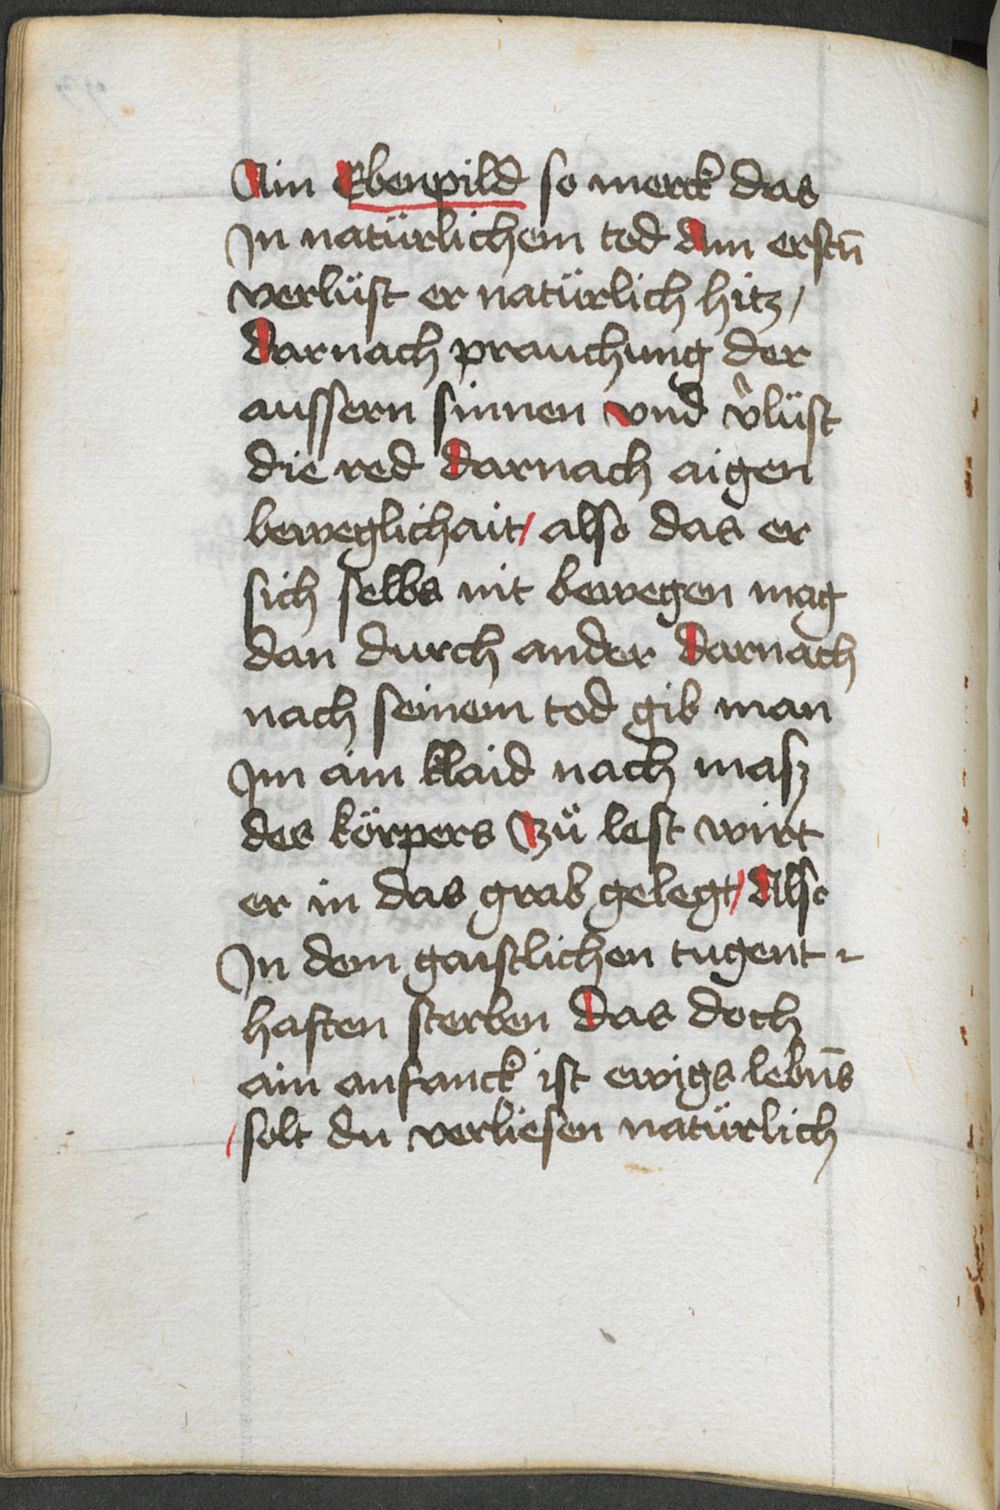 Ain Ebenpild so merck das
In natürlichem tod Am erstn̄
verlüst er natürlich hitz /
darnach prauchung der
aussern sinnen vnd v̉lüst
die red darnach aigen
beweglichait / also das er
sich selbs nit bewegen mag
dan durch ander darnach
nach seinem tod gib man
Im ain klaid nach masz
des körpers Zů lest wirt
er in das grab gelegt / Also
In dem gaistlichen tugent -
haften sterben das doch
ain anfanck ist ewigs lebn̄s
/ solt du verliesen natürlich